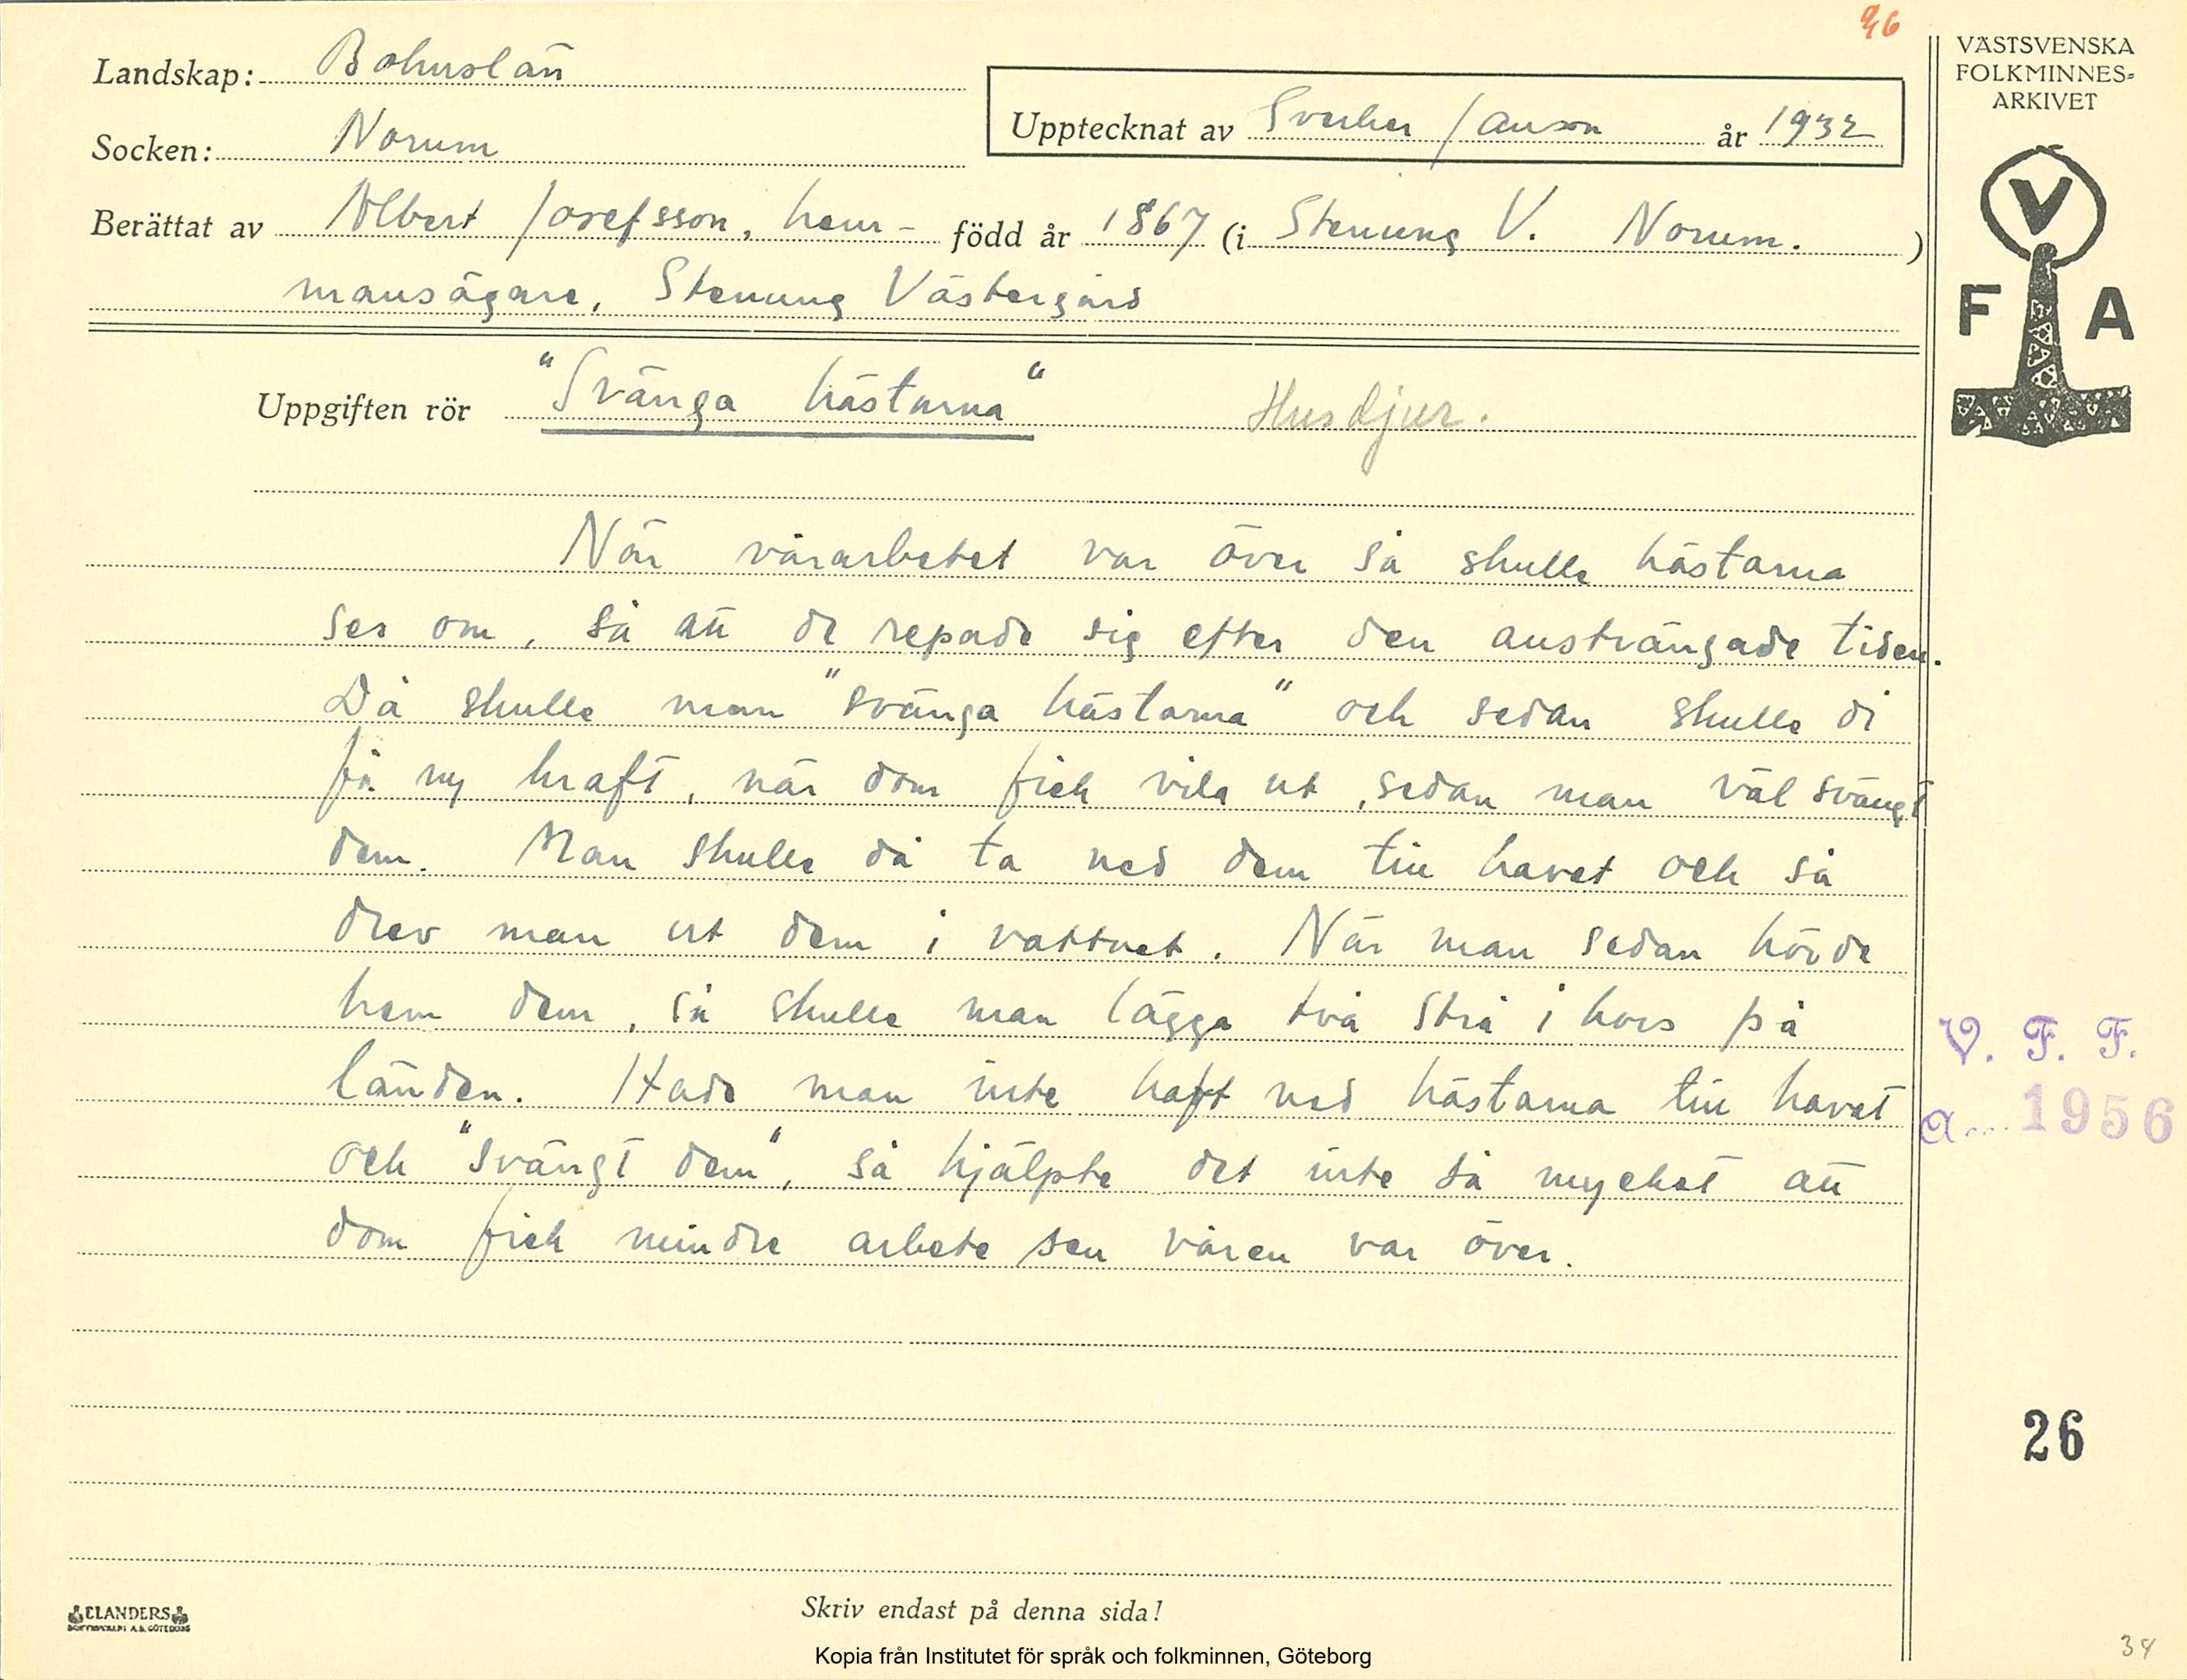 96
Landskap: Bohuslän
Socken: Norum
Upptecknat av Sverker Janson år 1932
Berättat av Albert Josefsson, hem- född år 1867 (i Stenung V. Norum. )
mansägare, Stenung Västergård
Uppgiften rör "Svänga hästarna" Husdjur.
När vårarbetet var över så skulle hästarna
ses om, så att de repade sig efter den ansträngade tiden.
Då skulle man "svänga hästarna" och sedan skulle di
få ny kraft, när dom fick vila ut, sedan man väl svängt
dem. Man skulle då ta ned dem till havet och så
drev man ut dem i vattnet. När man sedan körde
hem dem, så skulle man lägga två strå i kors på
länden. Hade man inte haft ned hästarna till havet
och "svängt dem", så hjälpte det inte så mycket att
dom fick mindre arbete sen våren var över.
VÄSTSVENSKA
FOLKMINNES-
ARKIVET
V
F A
V. F. F.
a... 1956
26
ELANDERS
BOKTRYCKERI A.B. GÖTEBORG
Skriv endast på denna sida!
Kopia från Institutet för språk och folkminnen, Göteborg
34